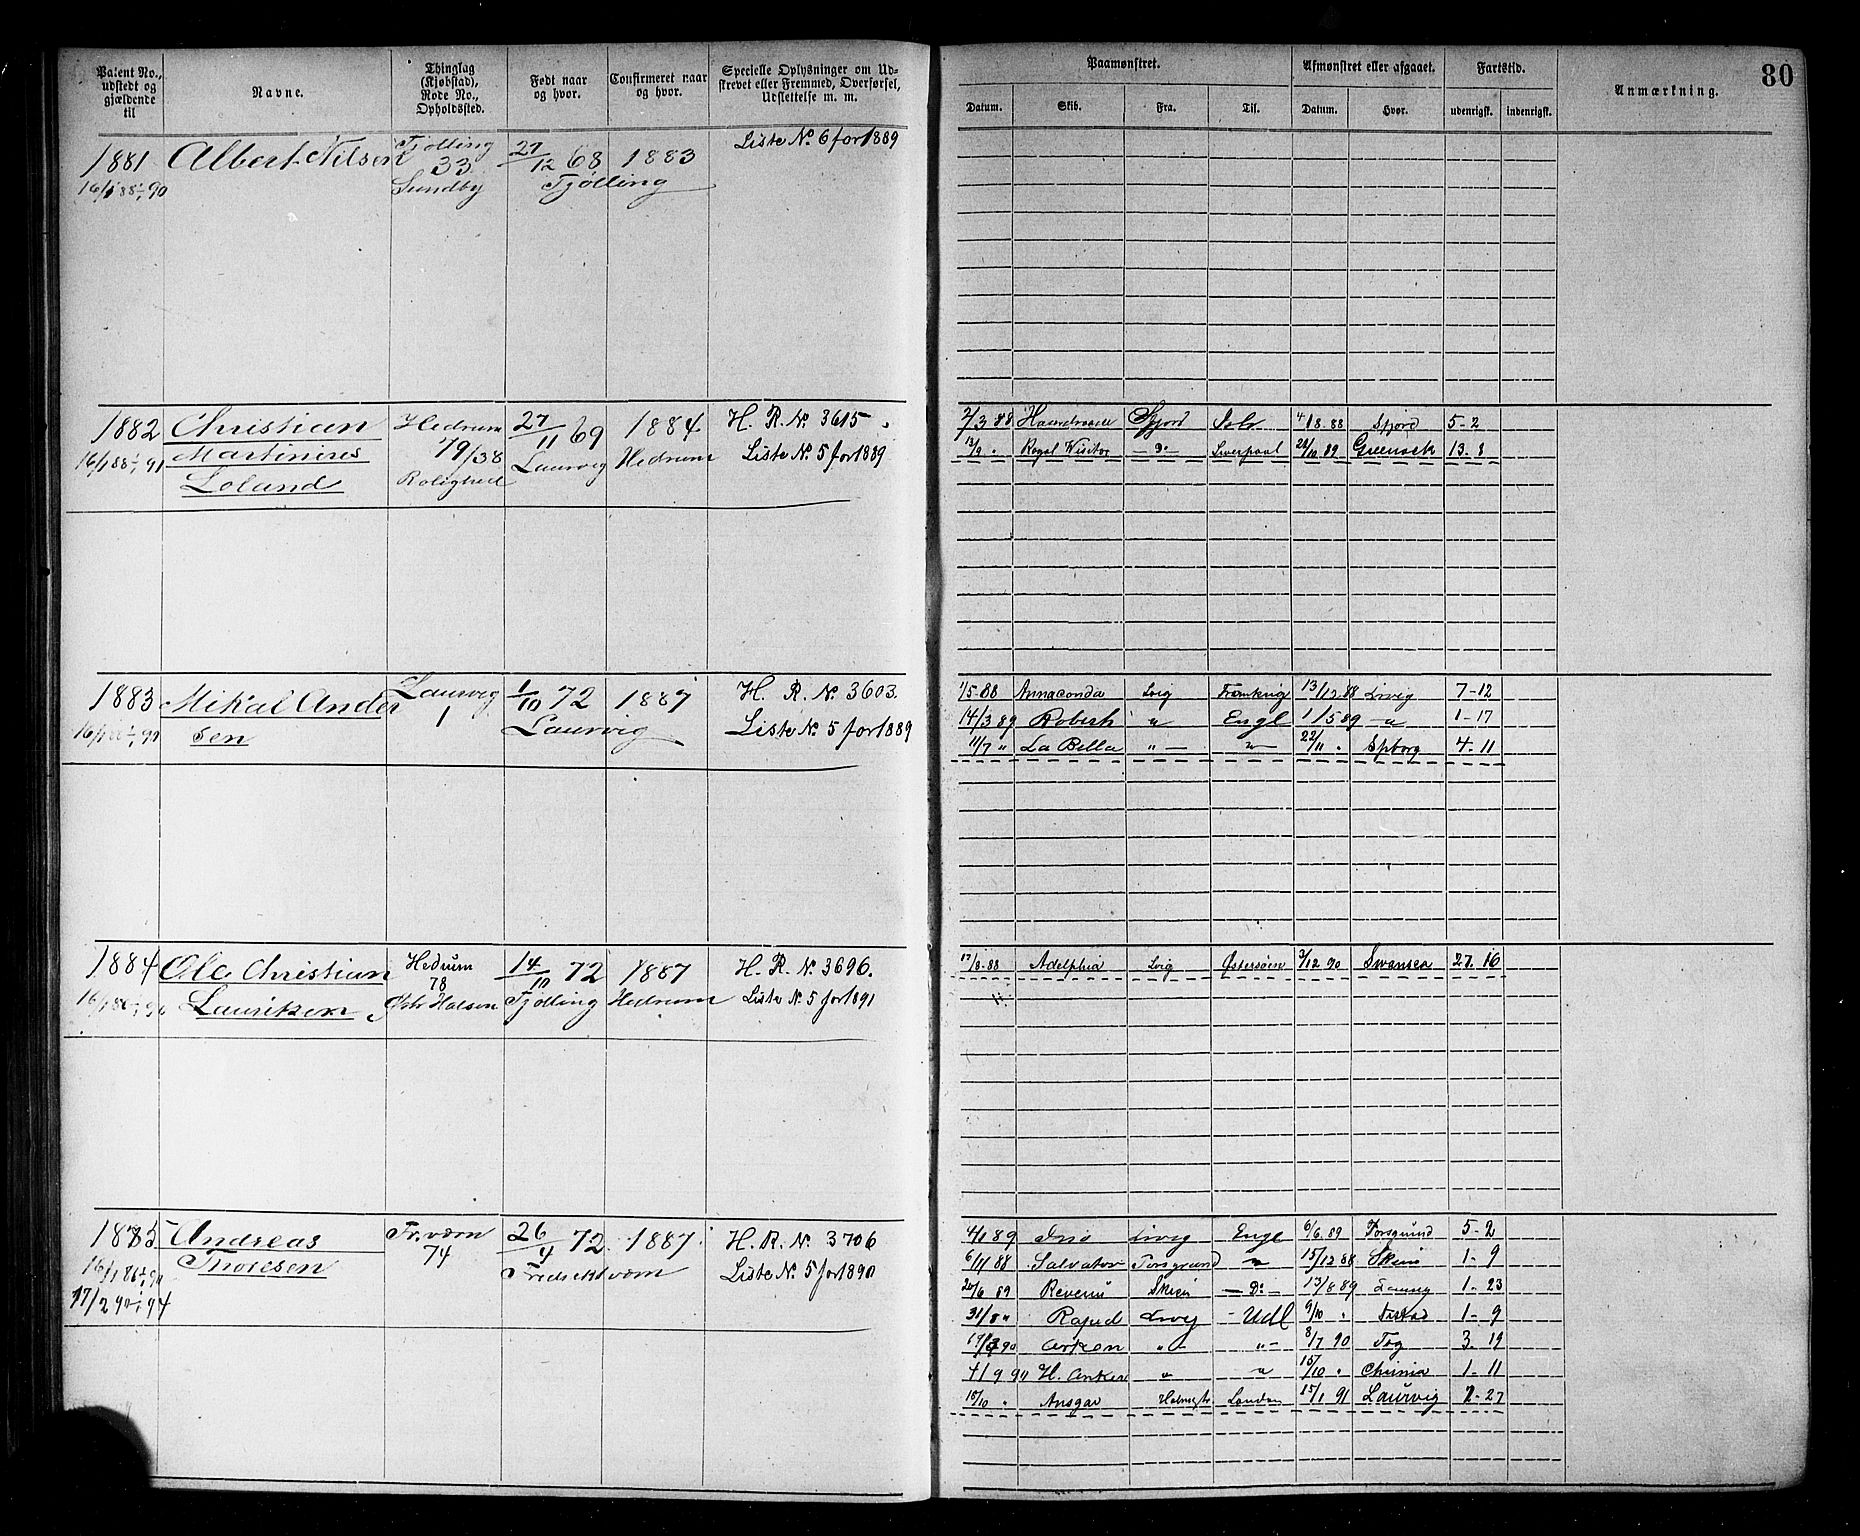 80
Patent No., udstedt og gjældende til
Navne.
Thinglag (Kjøbstad), Rode No., Opholdssted.
Født naar og hvor.
Confirmeret naar og hvor.
Specielle Oplysninger om Udstrevet eller Fremmed, Overførsel, Udslettelse m. m.
Paamønstret.
Datum. Skib. Fra. Til.
Afmønstret eller afgaaet.
Datum. Hvor.
Fartstid.
udenrigsk. indenrigsk.
Anmærkning.
1881 Albert Nilsen Tjølling 27/12 68 1883 Liste No. 6 for 1889
33
Sundby Tjølling
1882 Christian Hedrum 27/11 69 1884 H. R. No. 3615
Martinius 79/38 Laurvig Hedrum Liste No. 5 for 1889
Loland Rolighed
2/3 88 Sfjord 4/8 88 Sfjord 5-2
13/9 " Royal Visitor Do Liverpool 28/10 89 Greenock 13. 8
1883 Mikal Ander Laurvig 1/10 72 1887 H. R. No. 3603
sen 1 Laurvig Liste No. 5 for 1889
1/5 88 Annaconda Lvig Frankrig 13/12 88 Lrvig 7-12
14/3 89 Robert " Engl 1/5 89 " 1-17
11/7 " La Bella " " 22/11 " Spborg 4-11
1884 Ole Christian Hedrum 14/10 72 1887 H. R. No. 3696.
Lauritzen 78 Tjølling Hedrum Liste No. 5 for 1891
Østr Halsen
17/8 88 Adelphia Lvig Østersøen 3/12 90 Swansea 27. 16
1885 Andreas Fr.værn 26/4 72 1887 H. R. No. 3706
Thoresen 74 Fredriksværn Liste No. 5 for 1890
17/2 90 94
4/1 89 Lrvig Engl 6/6 89 Porsgrund 5-2
6/11 88 Salvator Porsgrund " 15/12 88 Skien 1-9
20/6 89 Skien Do 13/8 89 1-23
31/8 " Rapid Lrvig Udl 9/10 " 1-9
" " 8/7 90 3. 19
4/9 90 H. Anker " " 15/10 " Chrinia 1-11
15/10 " Ansgar London 15/1 91 Laurvig 2-27